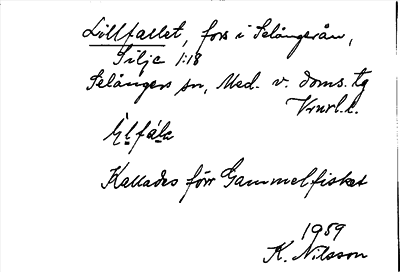 Lillfallet, fors i Selångersån,
Silje 1:18
Selångers sn, Med. v. doms. tg
Kallades förr Gammelfisket
1959
K. Nilsson